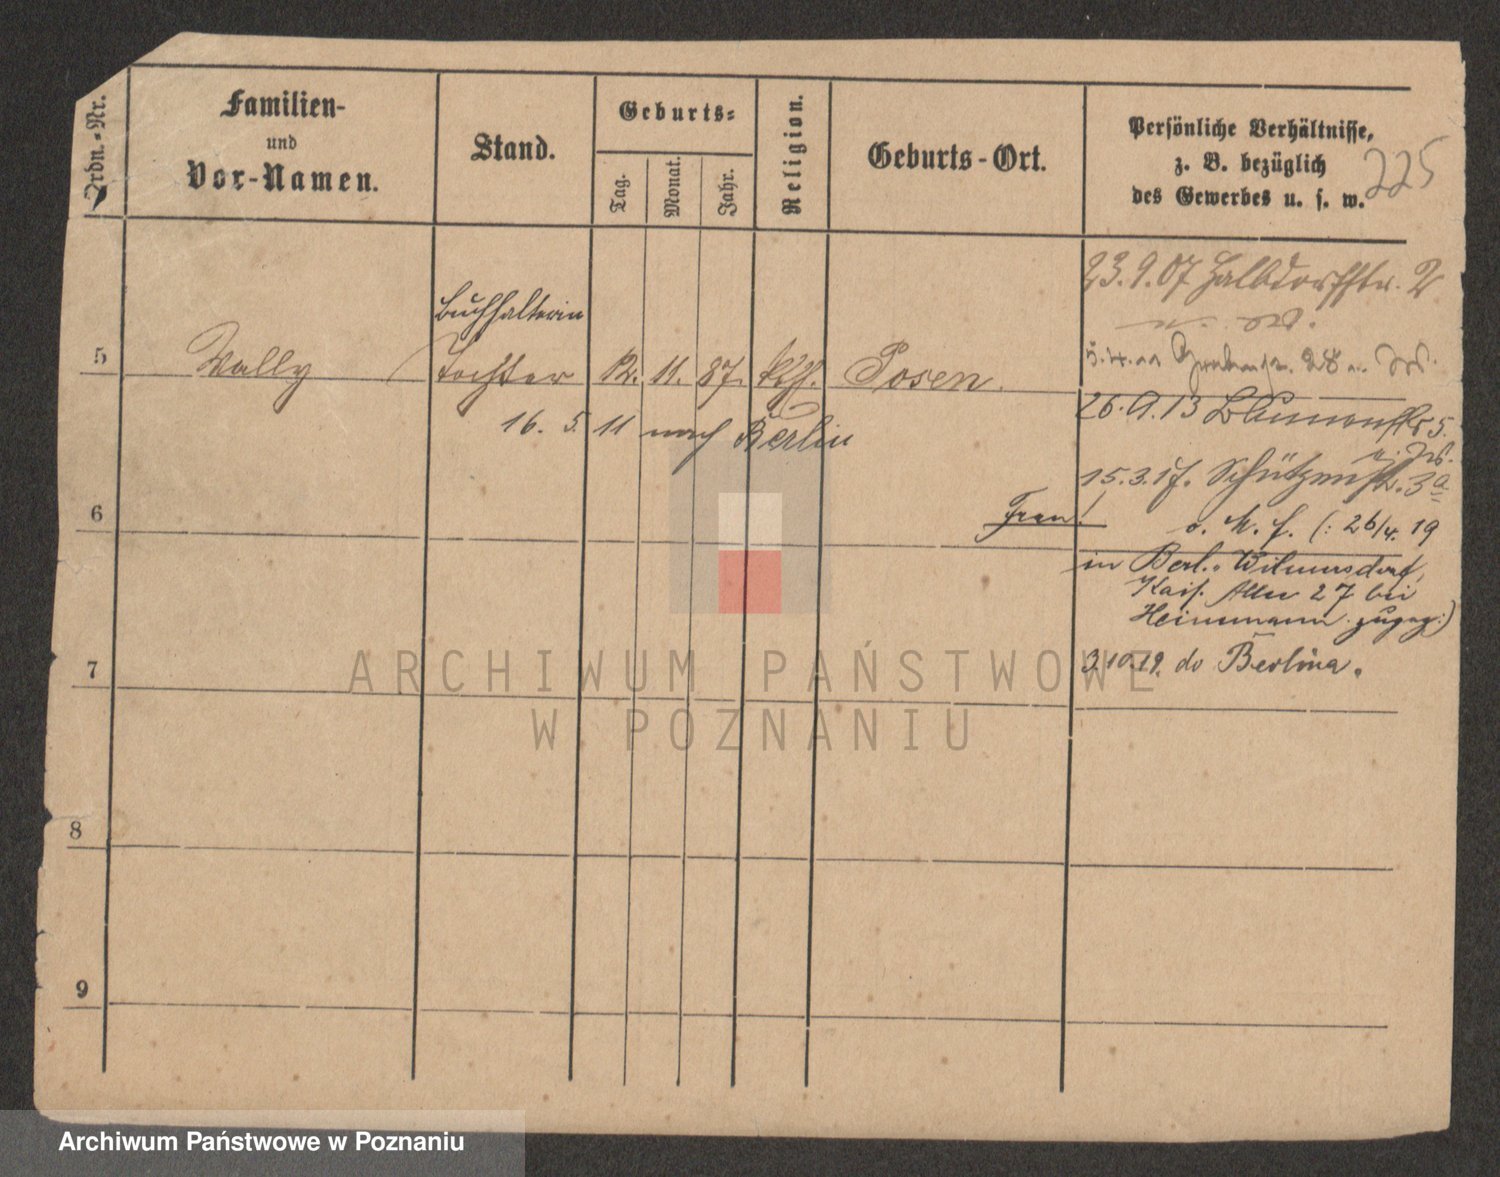 Ordn.-Nr.
Familien-
und
Vor-Namen.
Stand.
Geburts-
Tag.
Monat.
Jahr.
Religion.
Geburts-Ort.
Persönliche Verhältnisse,
z. B. bezüglich
des Gewerbes u. s. w.
225
23.9.07 Halbdorfstr. 2
Buchhalterin
5 Wally Tochter 12. 11. 87. kth. Posen.
28
26.9.13 Blumenstr 5.
16. 5. 11 nach Berlin
15.3.17. Schützenstr. 3a
6
Frau!
o. M. f. (: 26/4. 19
in Berl. Wilmersdorf,
Kais. Allee 27 bei
Heinemann zugez:)
7
3.10.19. do Berlina.
8
9
ARCHIWUM PAŃSTWOWE
W POZNANIU
Archiwum Państwowe w Poznaniu